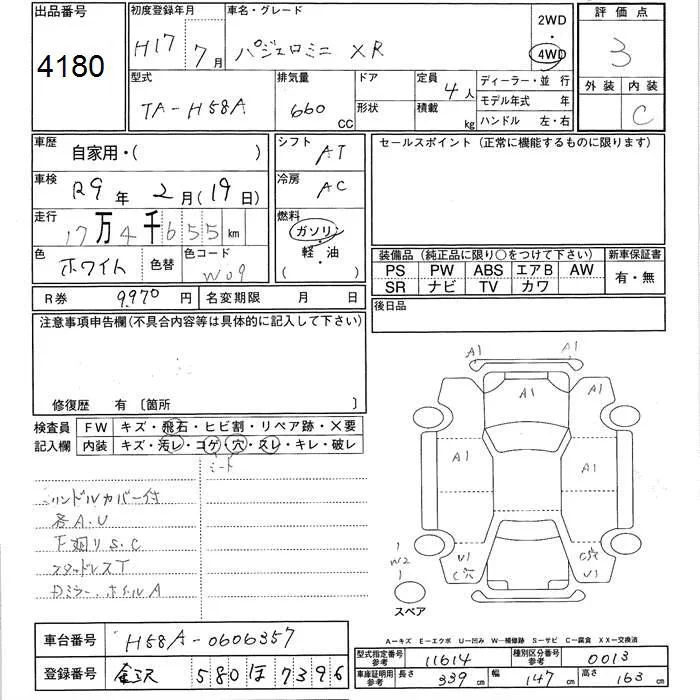 出品番号
4180
初度登録年月
H17年 7月
車名・グレード
パジェロミニ XR
2WD
・
4WD
評価点
3
外装 内装
C
型式
TA-H58A
排気量
660 CC
ドア
形状
定員 4人
積載 kg
ディーラー・並行
モデル年式 年
ハンドル 左・右
車歴
自家用・( )
シフト AT
セールスポイント (正常に機能するものに限ります)
車検
R9年 2月(19日)
冷房 AC
走行
17万4千655km
燃料
ガソリン
・
軽・油
( )
色 ホワイト 色替
色コード W09
装備品 (純正品に限り○をつけて下さい)
新車保証書
PS PW ABS エアB AW
SR ナビ TV カワ
有・無
R券 9,970円 名変期限 月 日
後日品
注意事項申告欄(不具合内容等は具体的に記入して下さい)
修復歴 有 〔箇所 〕
検査員
記入欄
FW キズ・飛石・ヒビ割・リペア跡・X要
内装 キズ・汚レ・コゲ・穴・スレ・キレ・破レ
シート
ハンドルカバー付
各A.U
下廻りS.C
スタッドレスT
Dミラー、ホイルA
A1 A1
A1
A1 A1
A1
U1
C穴
C穴
U1
W2
スペア
A-キズ E-エクボ U-凹み W-補修跡 S-サビ C-腐食 XX-交換済
車台番号 H58A-0606357
登録番号 金沢 580 ほ 7396
型式指定番号
参考
11614
種別区分番号
参考
0013
車庫証明寸法
参考
長さ 339cm 幅 147cm 高さ 163cm